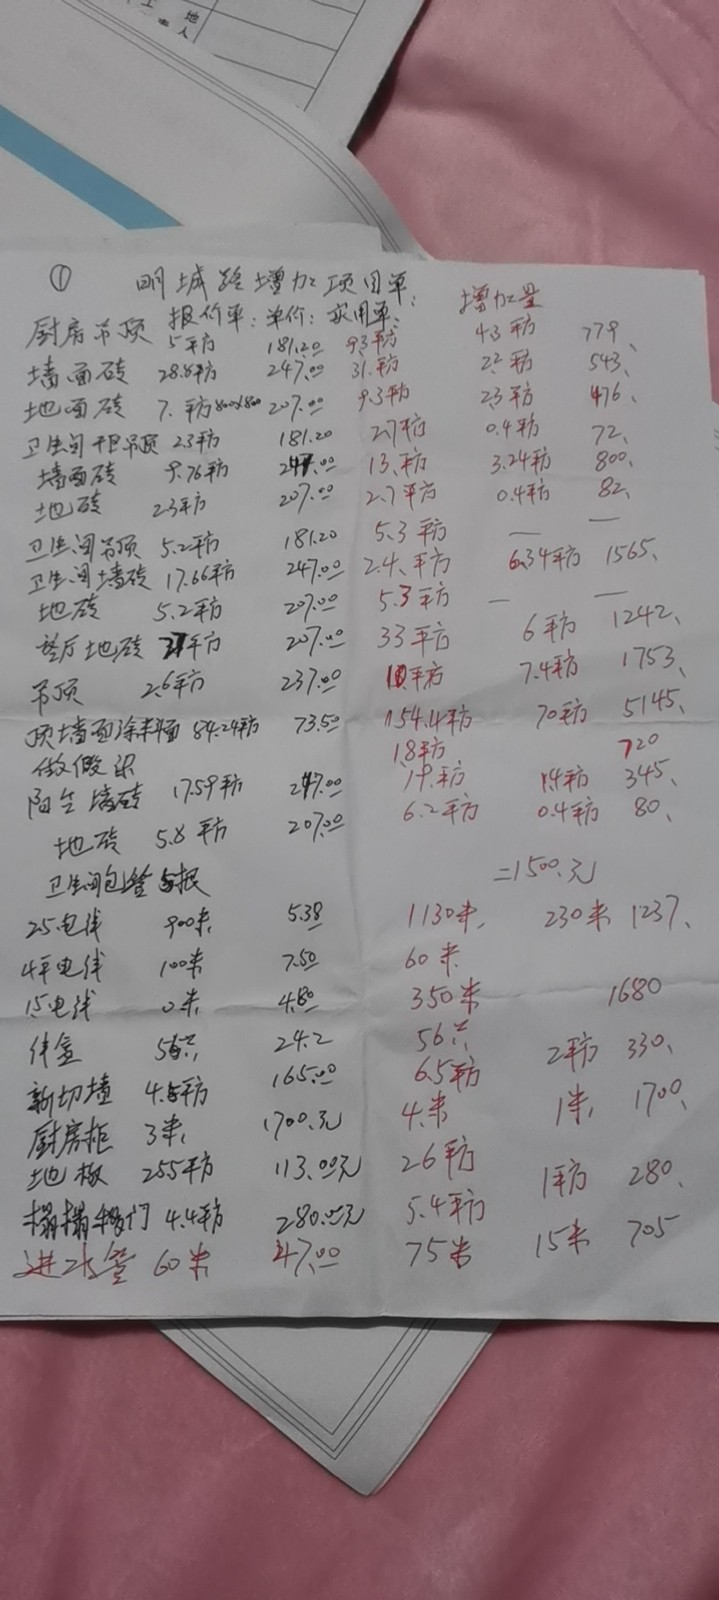 地
人
① 明城路增加项目单:
报价单: 单价: 实用单: 增加量
厨房吊顶 5平方 181.20 9.3平方 4.3平方 779、
墙面砖 28.8平方 247.00 31.平方 2.2平方 543、
地面砖 7.平方800x800 207.00 9.3平方 2.3平方 476、
卫生间干区吊顶 2.3平方 181.20 2.7平方 0.4平方 72、
墙面砖 9.76平方 247.00 13.平方 3.24平方 800、
地砖 2.3平方 207.00 2.7平方 0.4平方 82、
卫生间吊顶 5.2平方 181.20 5.3平方 — —
卫生间墙砖 17.66平方 247.00 2.4.平方 6.34平方 1565、
地砖 5.2平方 207.00 5.3平方 — —
客厅地砖 27平方 207.00 33平方 6平方 1242、
吊顶 2.6平方 237.00 10平方 7.4平方 1753、
顶墙面涂 84.24平方 73.50 154.4平方 70平方 5145、
做假梁 1.8平方 720
阳台墙砖 17.59平方 247.00 19.平方 1.4平方 345、
地砖 5.8平方 207.00 6.2平方 0.4平方 80、
卫生间包管 =1500.元
2.5电线 900米 5.38 1130米, 230米 1237、
4平电线 100米 7.50 60米
1.5电线 0米 4.80 350米 1680
56 24.2 56
新切墙 4.5平方 165.00 6.5平方 2平方 330、
厨房柜 3米, 1700.元 4.米 1米, 1700、
地板 25.5平方 113.00元 26平方
榻榻米 4.4平方 280.00元 5.4平方 1平方 280、
进水管 60米 47.00 75米 15米 705